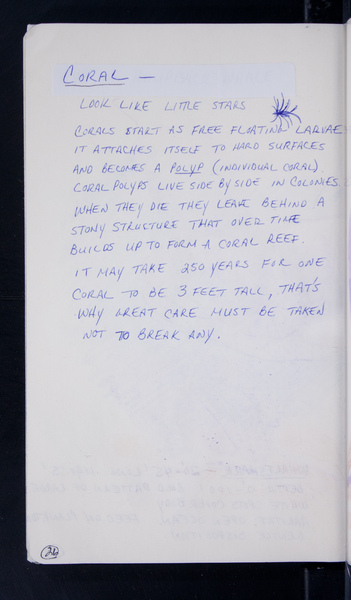 CORAL -
LOOK LIKE LITTLE STARS
CORALS START AS FREE FLOATING LARVAE
IT ATTACHES ITSELF TO HARD SURFACES
AND BECOMES A POLYP (INDIVIDUAL CORAL)
CORAL POLYPS LIVE SIDE BY SIDE IN COLONIES
WHEN THEY DIE THEY LEAVE BEHIND A
STONY STRUCTURE THAT OVER TIME
BUILDS UP TO FORM A CORAL REEF.
IT MAY TAKE 250 YEARS FOR ONE
CORAL TO BE 3 FEET TALL, THAT'S
WHY GREAT CARE MUST BE TAKEN
NOT TO BREAK ANY.